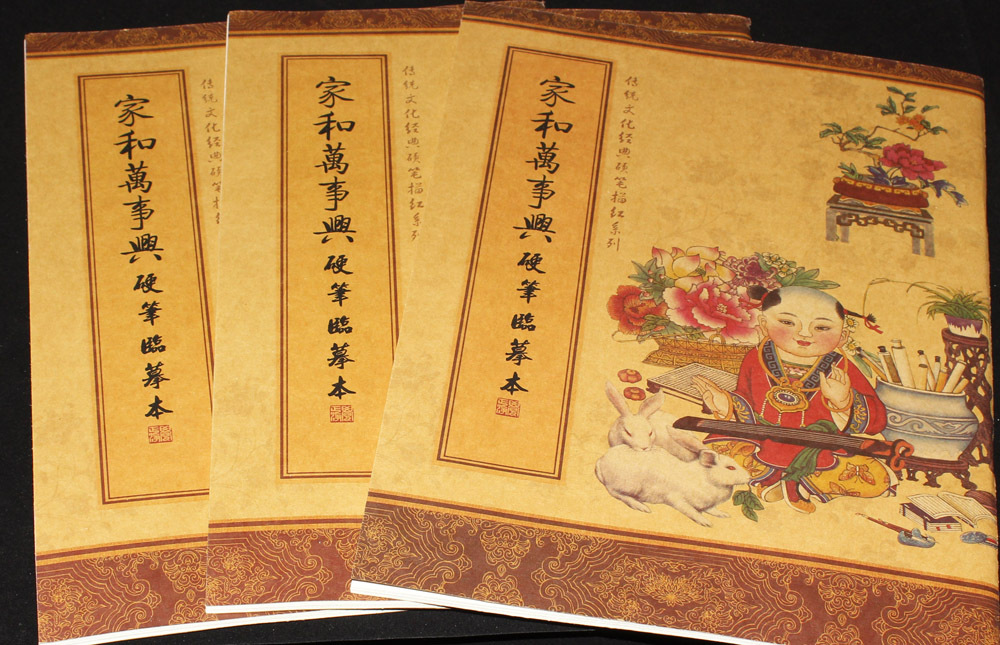 家和萬事興硬筆臨摹本
传统文化经典硬笔
家和萬事興硬筆臨摹本
传统文化经典硬笔描红系
家和萬事興硬筆臨摹本
传统文化经典硬笔描红系列